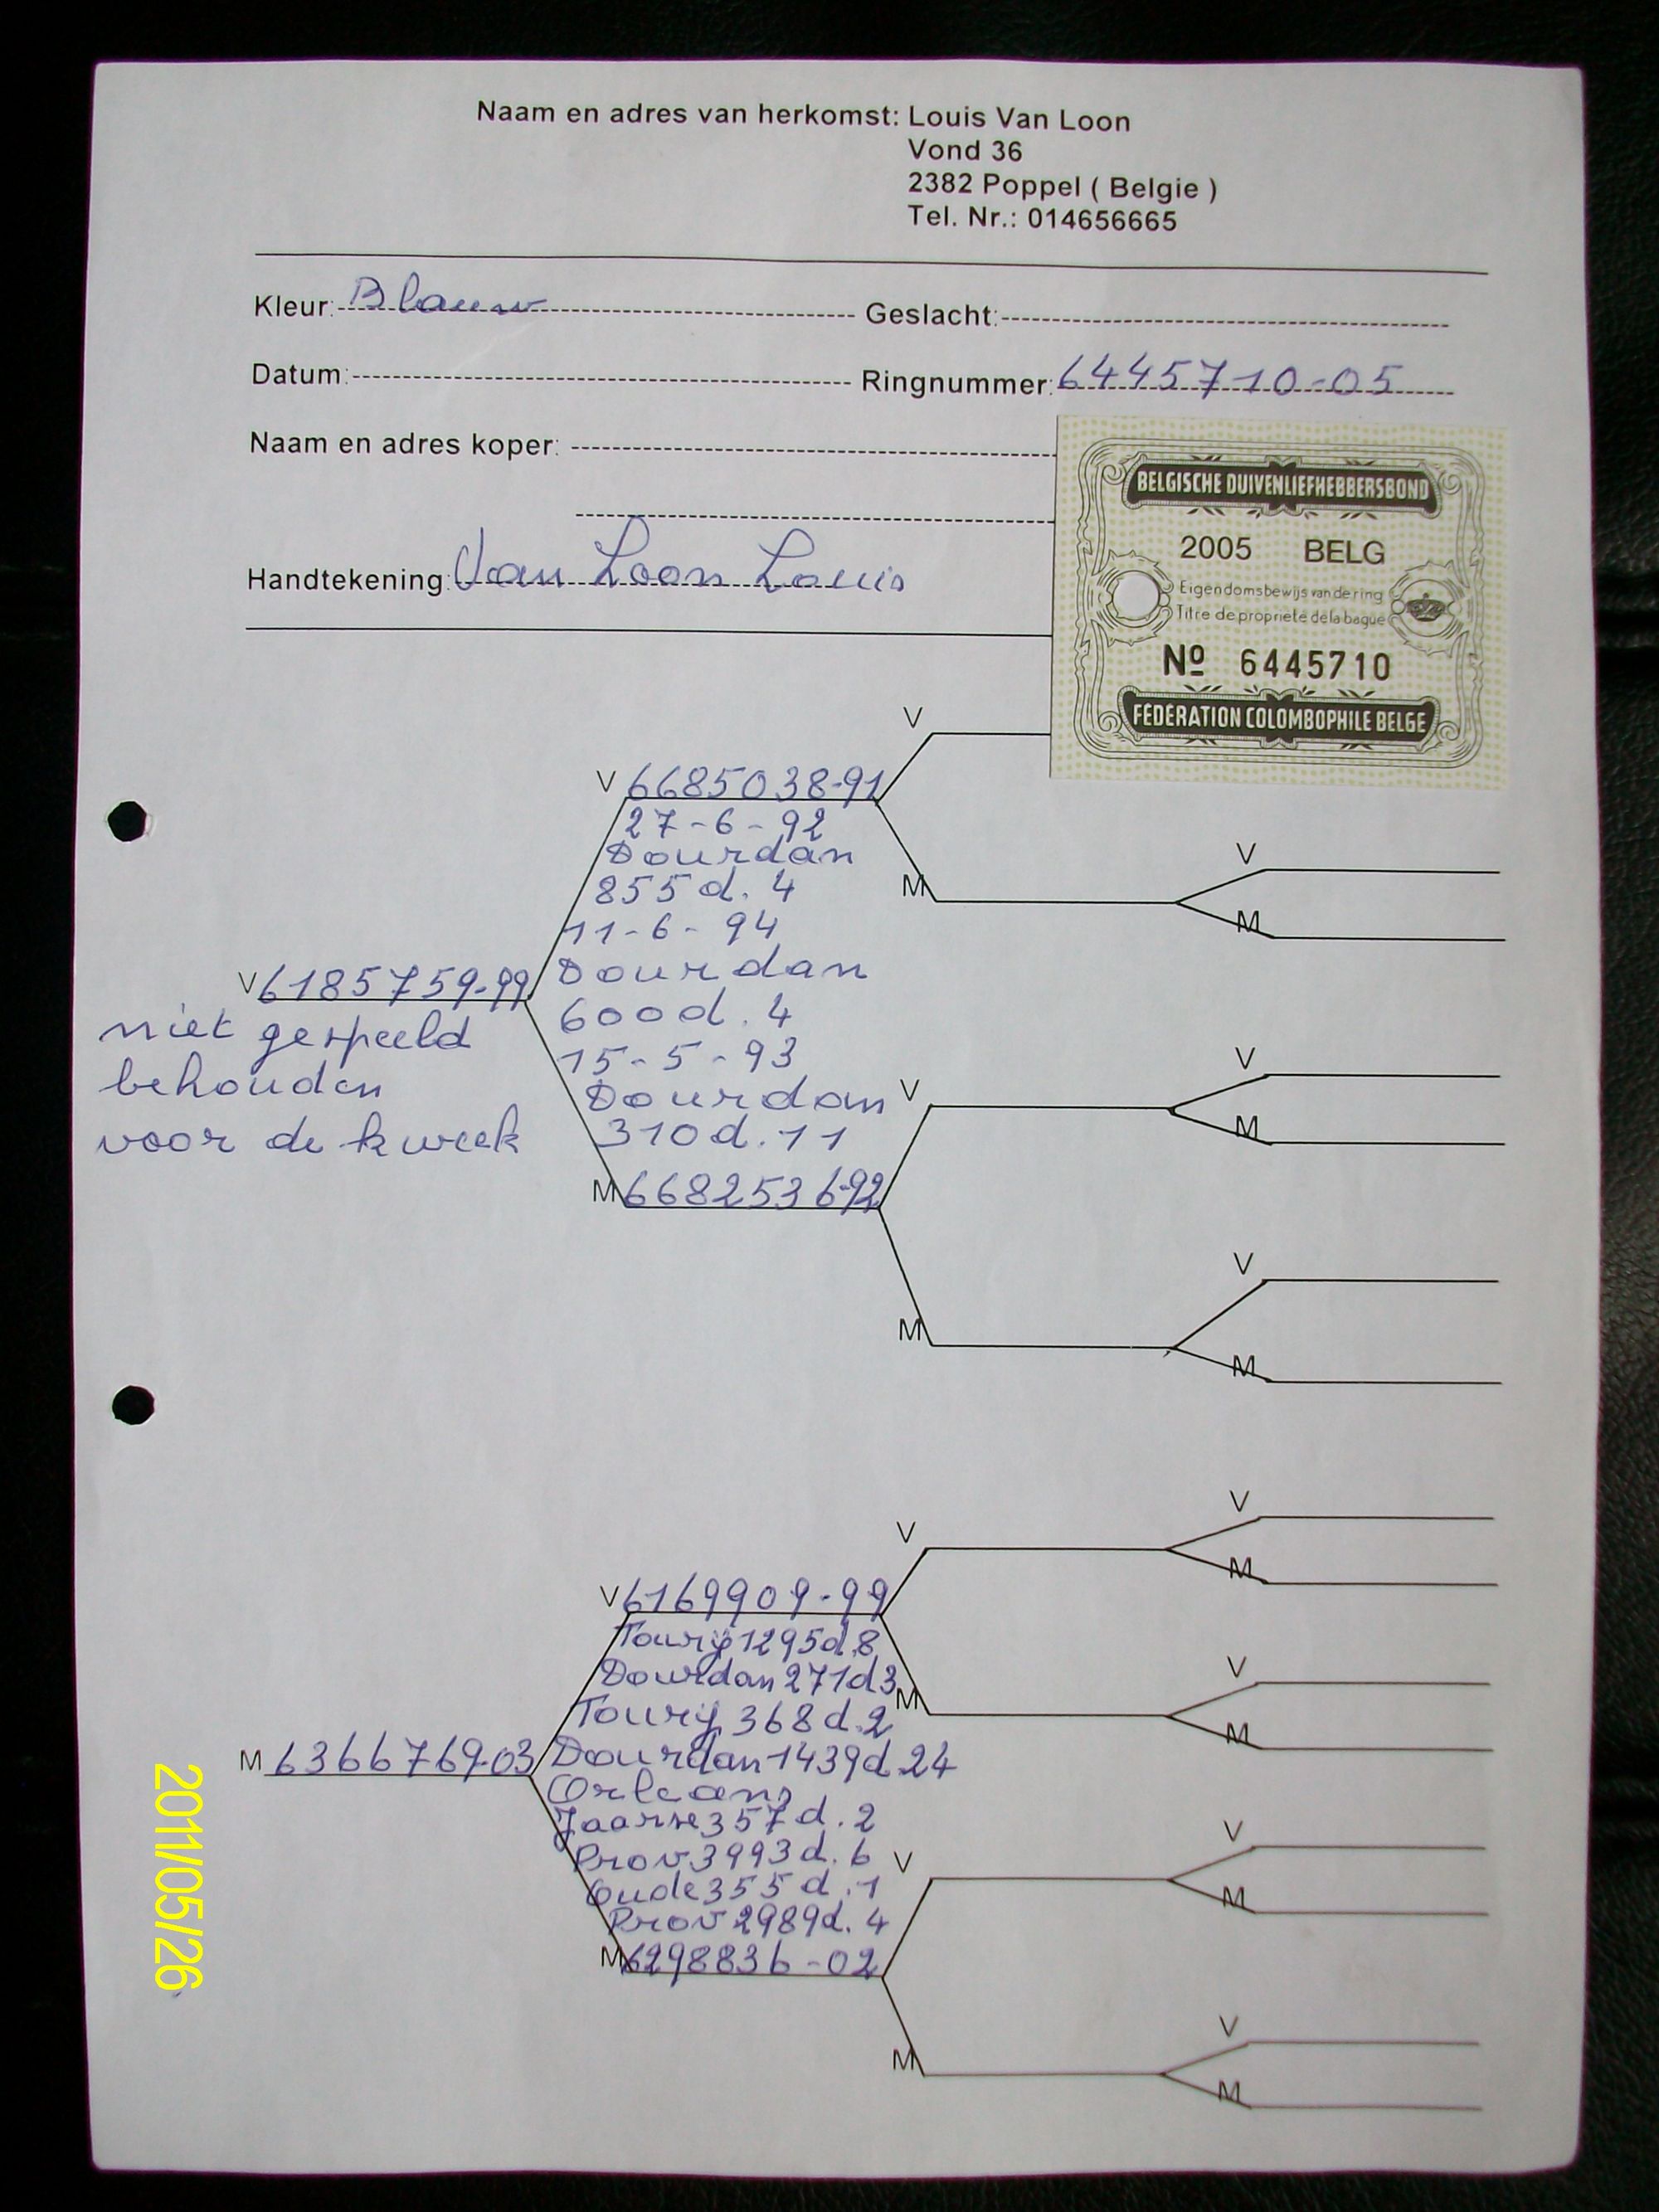 Naam en adres van herkomst: Louis Van Loon
Vond 36
2382 Poppel ( Belgie )
Tel. Nr.: 014656665
Kleur: Blauw Geslacht:
Datum: Ringnummer: 6445710-05
Naam en adres koper:
BELGISCHE DUIVENLIEFHEBBERSBOND
2005 BELG
Eigendomsbewijs van de ring
Titre de propriété de la bague
Nº 6445710
FÉDÉRATION COLOMBOPHILE BELGE
Handtekening: Van Loon Louis
V
V 6685038-91
27-6-92
Dourdan
855 d. 4
11-6-94
Dourdan
600 d. 4
15-5-93
Dourdan
310 d. 11
M
V
M
V 6185759-99
niet gespeeld
behouden
voor de kweek
V
V
M
M 6682536-92
M
V
M
V
V
M
V 6169909-99
Toury 1295 d. 8
Dourdan 271 d 3
Toury 368 d. 2
Dourdan 1439 d. 24
Orleans
Jaarse 357 d. 2
Prov 3993 d. 6
Oude 355 d. 1
Prov 2989 d. 4
M
V
M
M 6366769-03
V
V
M
M 6298836-02
M
V
M
2011/05/26